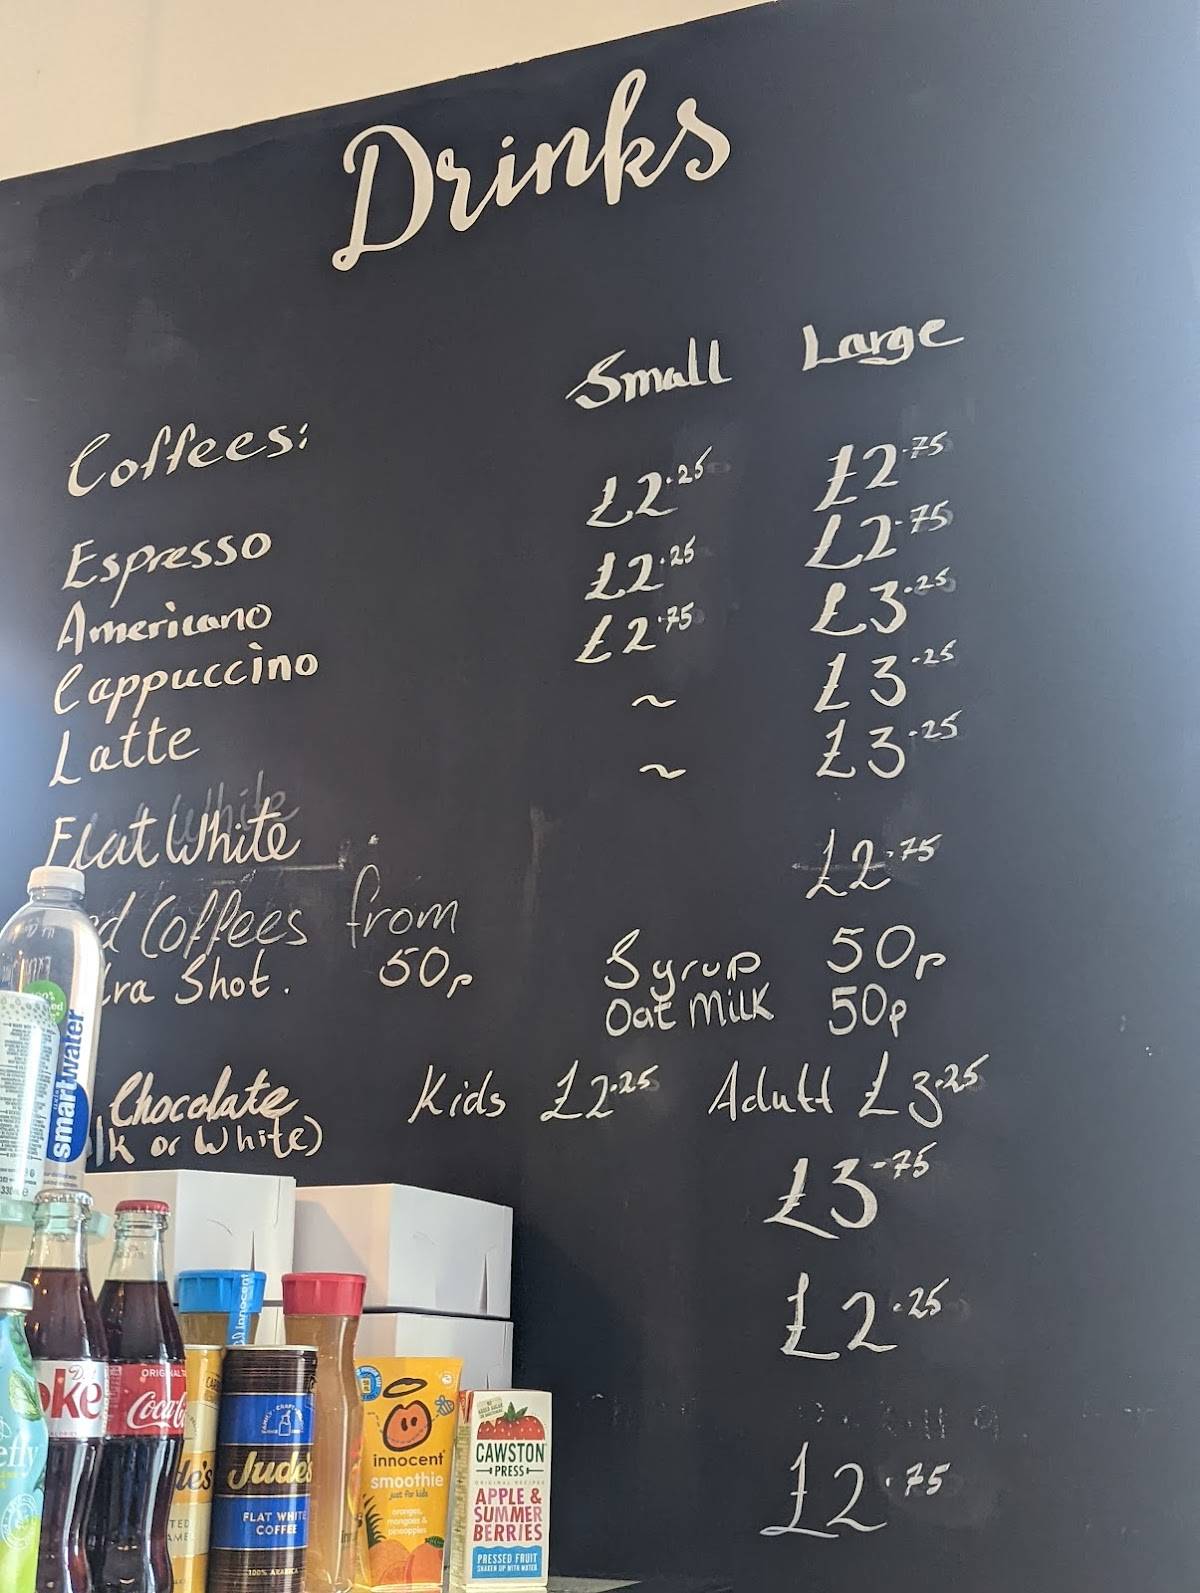 Drinks
Small Large
Coffees:
Espresso £2.25 £2.75
Americano £2.25 £2.75
Cappuccino £2.75 £3.25
Latte ~ £3.25
Flat White ~ £3.25
Flat White
ed Coffees from £2.75
tra Shot. 50p Syrup 50p
Oat Milk 50p
Chocolate Kids £2.25 Adult £3.25
lk or White)
£3.75
£2.25
£2.75
smartwater
oke
ORIGINAL
Coca-C
innocent
Jude's
FLAT WHITE
COFFEE
100% ARABICA
innocent
smoothie
just for kids
oranges,
mangoes &
pineapples
CAWSTON
PRESS
APPLE &
SUMMER
BERRIES
PRESSED FRUIT
SHAKEN UP WITH WATER